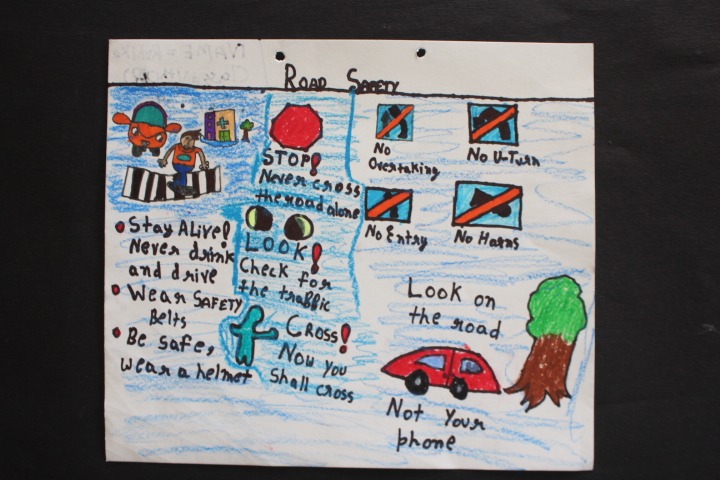 ROAD SAFETY
STOP!
Never cross
the road alone
LOOK!
Check for
the traffic
CROSS!
Now you
Shall cross
Stay Alive!
Never drink
and drive
Wear SAFETY
Belts
Be safe,
wear a helmet
No
Overtaking
No U-Turn
No Entry
No Horns
Look on
the road
Not Your
phone